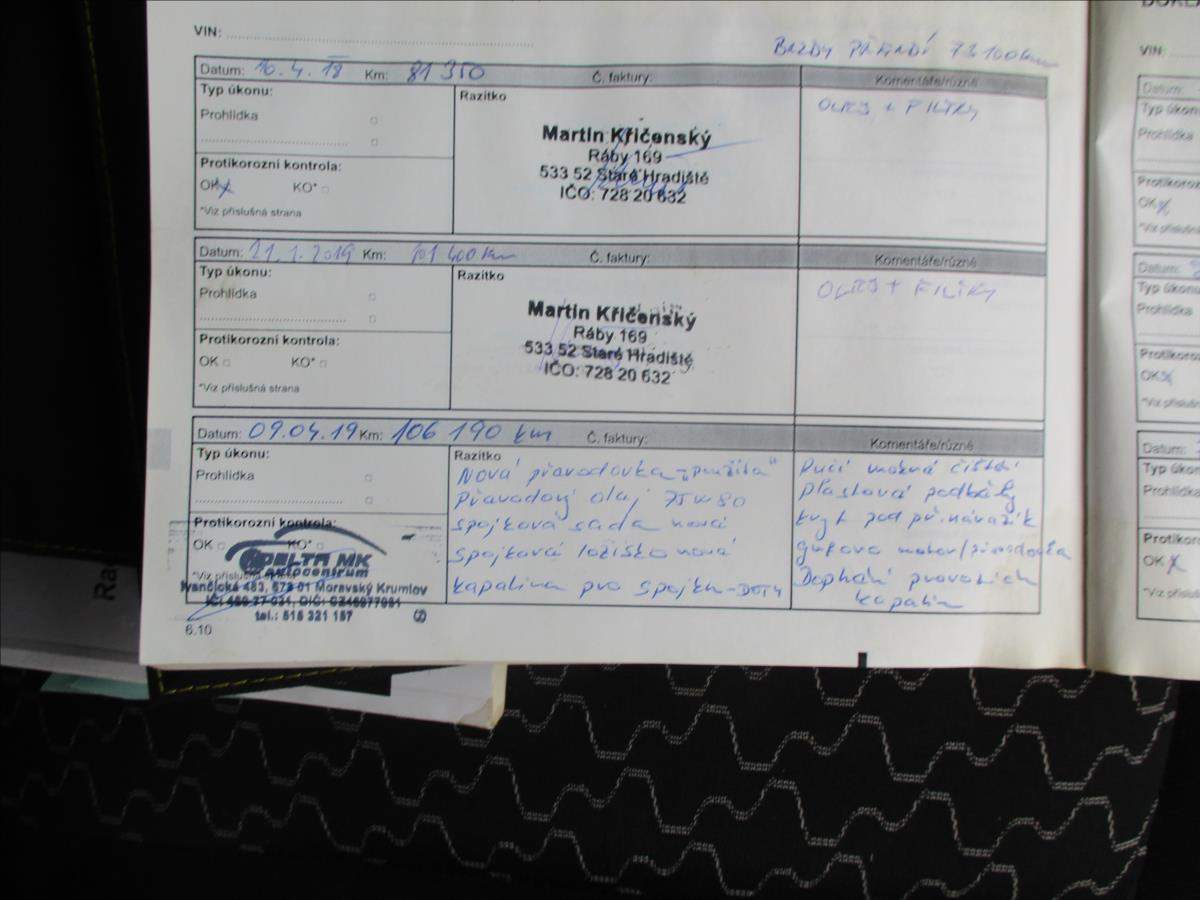 VIN:
BRZDY PŘEDNÍ 73 100 km
Datum: 16.4.18 Km: 81 350 Č. faktury: Komentáře/různé
Typ úkonu:
Prohlídka
Protikorozní kontrola:
OK KO*
*Viz příslušná strana
Razítko
Martin Křičenský
Ráby 169
533 52 Staré Hradiště
IČO: 728 20 632
OLEJ + FILTRY
Datum: 21.1.2019 Km: 101 400 km Č. faktury: Komentáře/různé
Typ úkonu:
Prohlídka
Protikorozní kontrola:
OK KO*
*Viz příslušná strana
Razítko
Martin Křičenský
Ráby 169
533 52 Staré Hradiště
IČO: 728 20 632
OLEJ + FILTRY
Datum: 09.04.19 Km: 106 190 km Č. faktury: Komentáře/různé
Typ úkonu:
Prohlídka
Protikorozní kontrola:
OK KO*
*Viz příslušná
DELTA MK
autocentrum
Ivančická 483, 672 01 Moravský Krumlov
tel.: 515 321 157
Razítko
Nová převodovka - "použitá"
Převodový olej 75W80
spojková sada nová
spojková ložisko nová
kapalina pro spojku - DOT4
Ruční čištění
plastová podběhy
kryt pod
motor/převodovka
Doplnění provozních
kapalin
6.10
VIN:
Datum:
Typ úkonu
Prohlídka
Protikorozní
OK
*Viz příslu
Datum:
Typ úkonu
Prohlídka
Protikorozní
OK
*Viz příslu
Datum:
Typ úkonu
Prohlídka
Protikorozní
OK
*Viz příslu